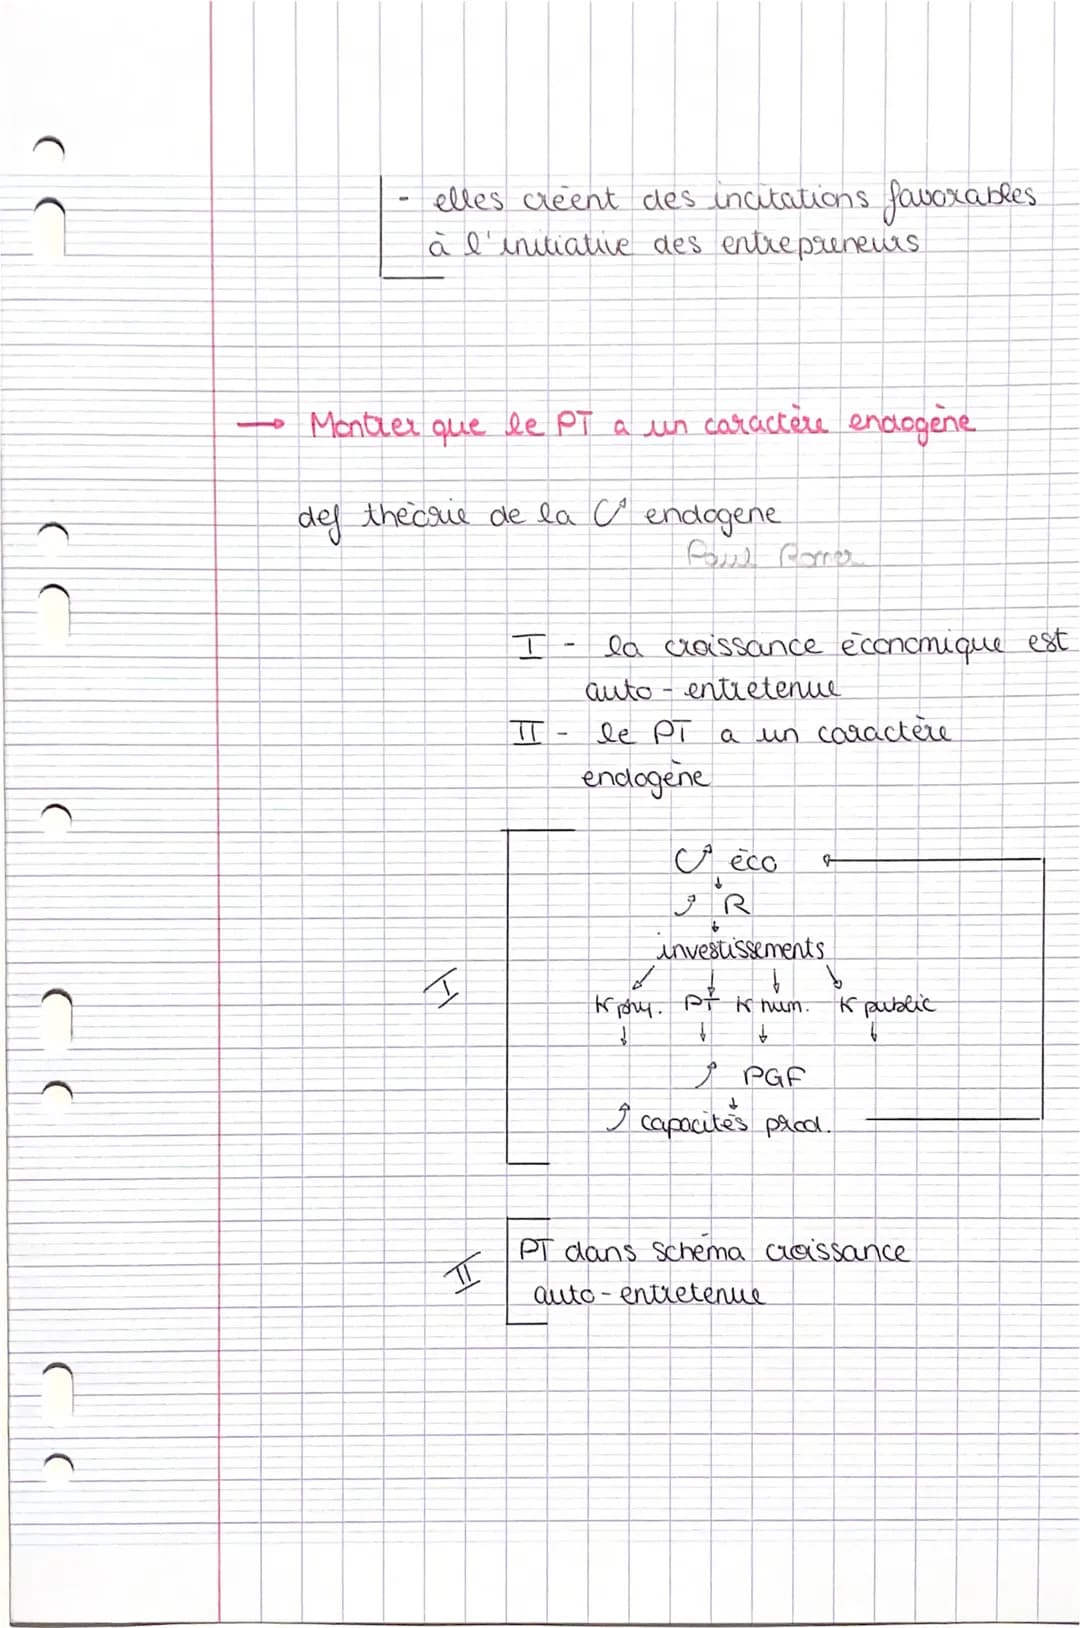 - elles créent des incitations favorables
à l'initiative des entrepreneurs
→ Montrer que le PT a un caractère endogène
def théorie de la C° endogene
Paul Romer
I - la croissance économique est
auto-entretenue
II - le PT a un caractère
endogène
I
C° éco
↓
↗ R
↓
investissements
↙ ↓ ↓ ↘
K phy. PT K hum. K public
↓ ↓ ↓ ↓
↗ PGF
↓
↗ capacités prod.
II
PT dans schéma croissance
auto-entretenue